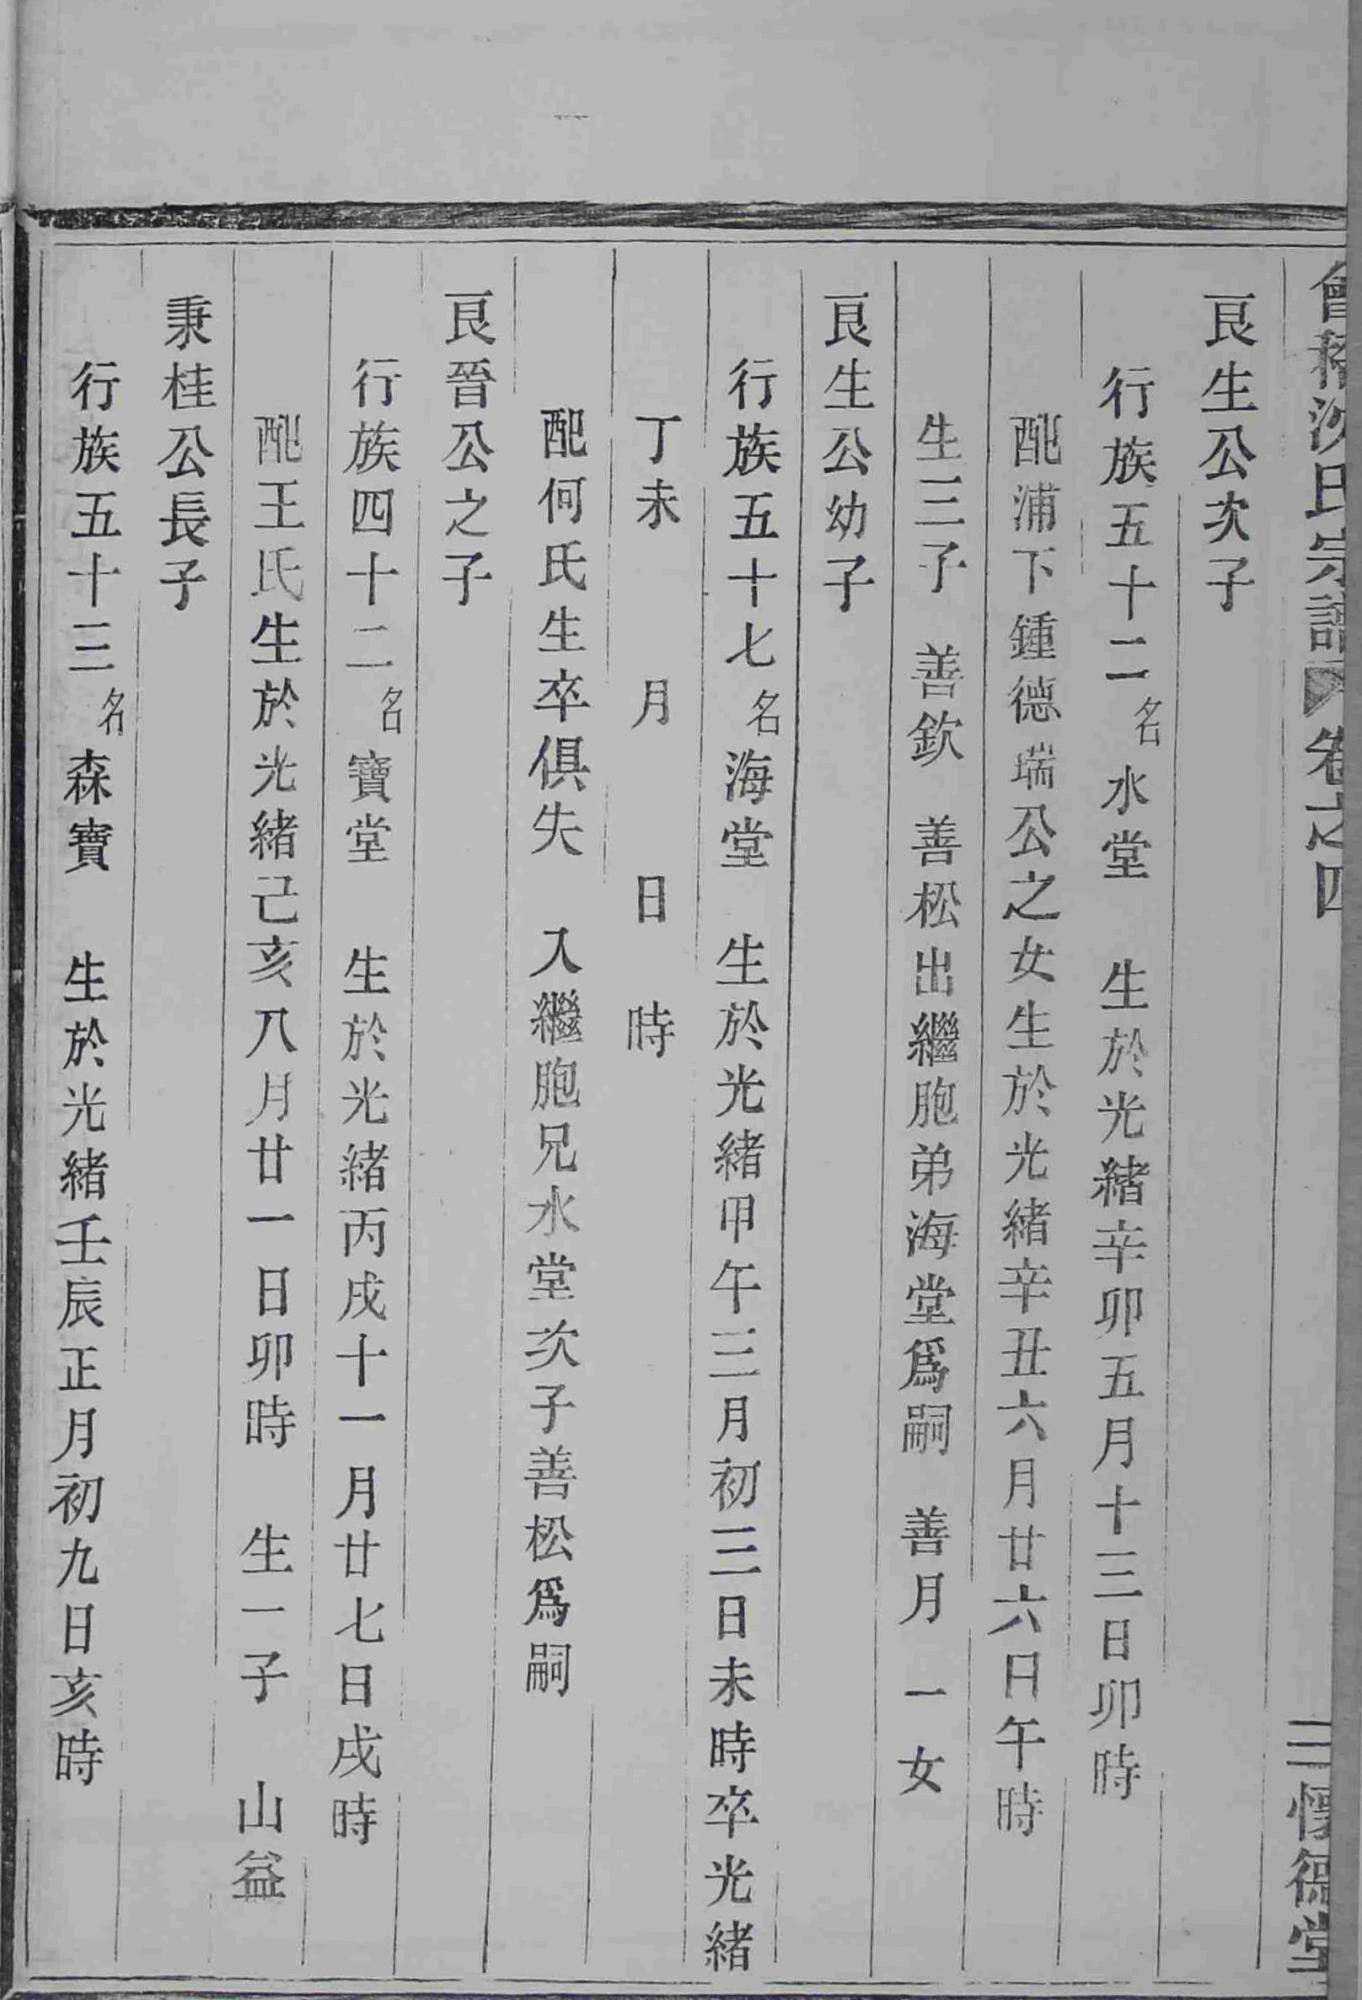 會稽沈氏宗譜 卷之四 三 懷德堂
良生公次子
行族五十二名水堂 生於光緒辛卯五月十三日卯時
配浦下鍾德瑞公之女生於光緒辛丑六月廿六日午時
生三子 善欽 善松出繼胞弟海堂爲嗣 善月 一女
良生公幼子
行族五十七名海堂 生於光緒甲午三月初三日未時卒光緒
丁未 月 日 時
配何氏生卒俱失 入繼胞兄水堂次子善松爲嗣
良晉公之子
行族四十二名寶堂 生於光緒丙戌十一月廿七日戌時
配王氏生於光緒己亥八月廿一日卯時 生一子 山益
秉桂公長子
行族五十三名森寶 生於光緒壬辰正月初九日亥時